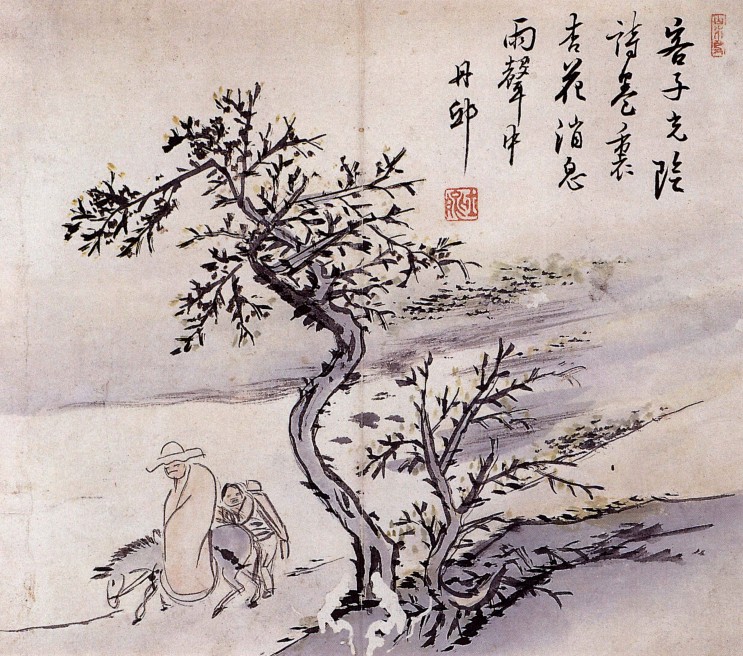 客子光陰
詩卷裏
杏花消息
雨聲中
丹邱